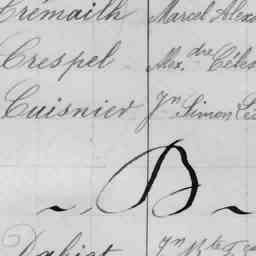 Crémailh Marcel Alex
Crespel Alex.dre Céles
Cuisnier Jn Simon Lé
~ D ~
Dabiat Jn Bte